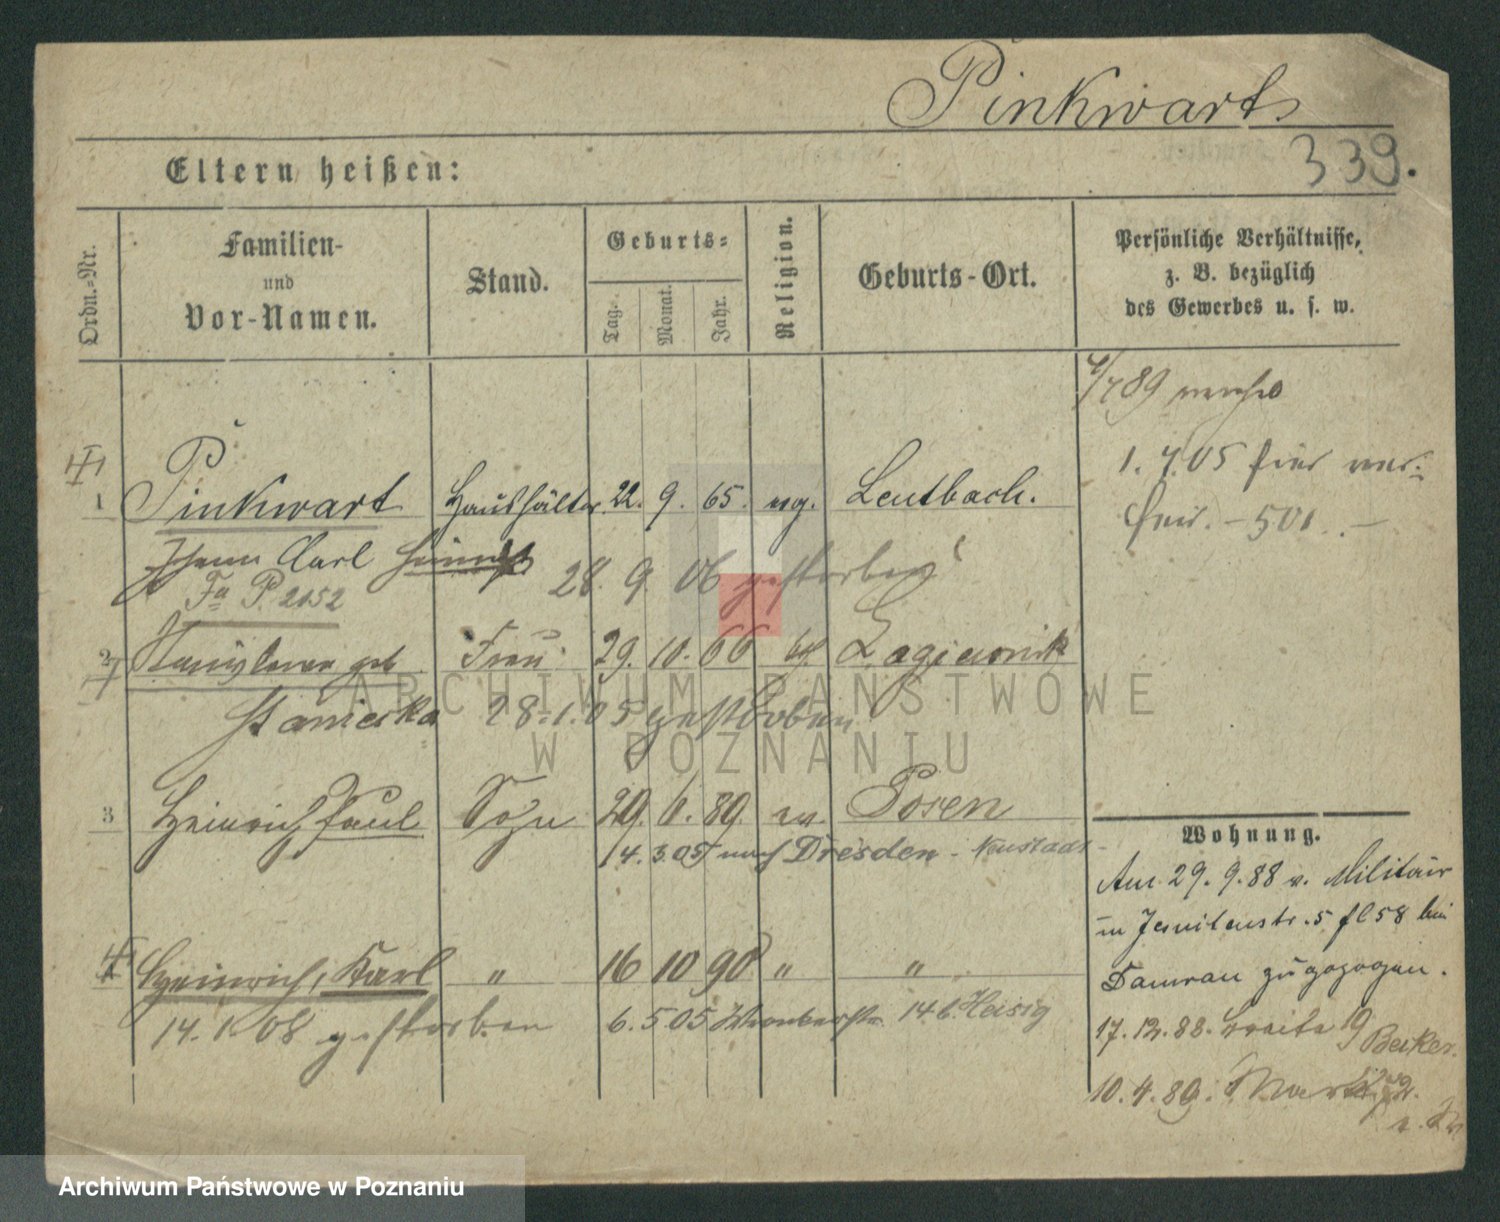 Pinkwart
339.
Eltern heißen:
Ordn.-Nr.
Familien-
und
Vor-Namen.
Stand.
Geburts-
Tag.
Monat.
Jahr.
Religion.
Geburts-Ort.
Persönliche Verhältnisse,
z. B. bezüglich
des Gewerbes u. s. w.
1 Pinkwart Haushälter 22. 9. 65. evg. Leutbach.
1.7.05 hier
501.
Carl
28. 9. 06 gestorben
Fa P. 2152
2 geb Frau 29. 10. 66 Lagiewnik
28.1.05 gestorben
3 Heinrich Paul Sohn 29. 6. 89. ev Posen
14.3.05 nach Dresden-Neustadt
4 Heinrich, Karl " 16 10 90 " "
14.1.08 gestorben 6.5.05 Wronkerstr. 14 b. Heisig
Wohnung.
Am 29.9.88 v. Militair
in Jesuitenstr. 5 bei
Damrau zugezogen.
17.12.88. Breite 19 Becker.
10.4.89.
ARCHIWUM PAŃSTWOWE
W POZNANIU
Archiwum Państwowe w Poznaniu